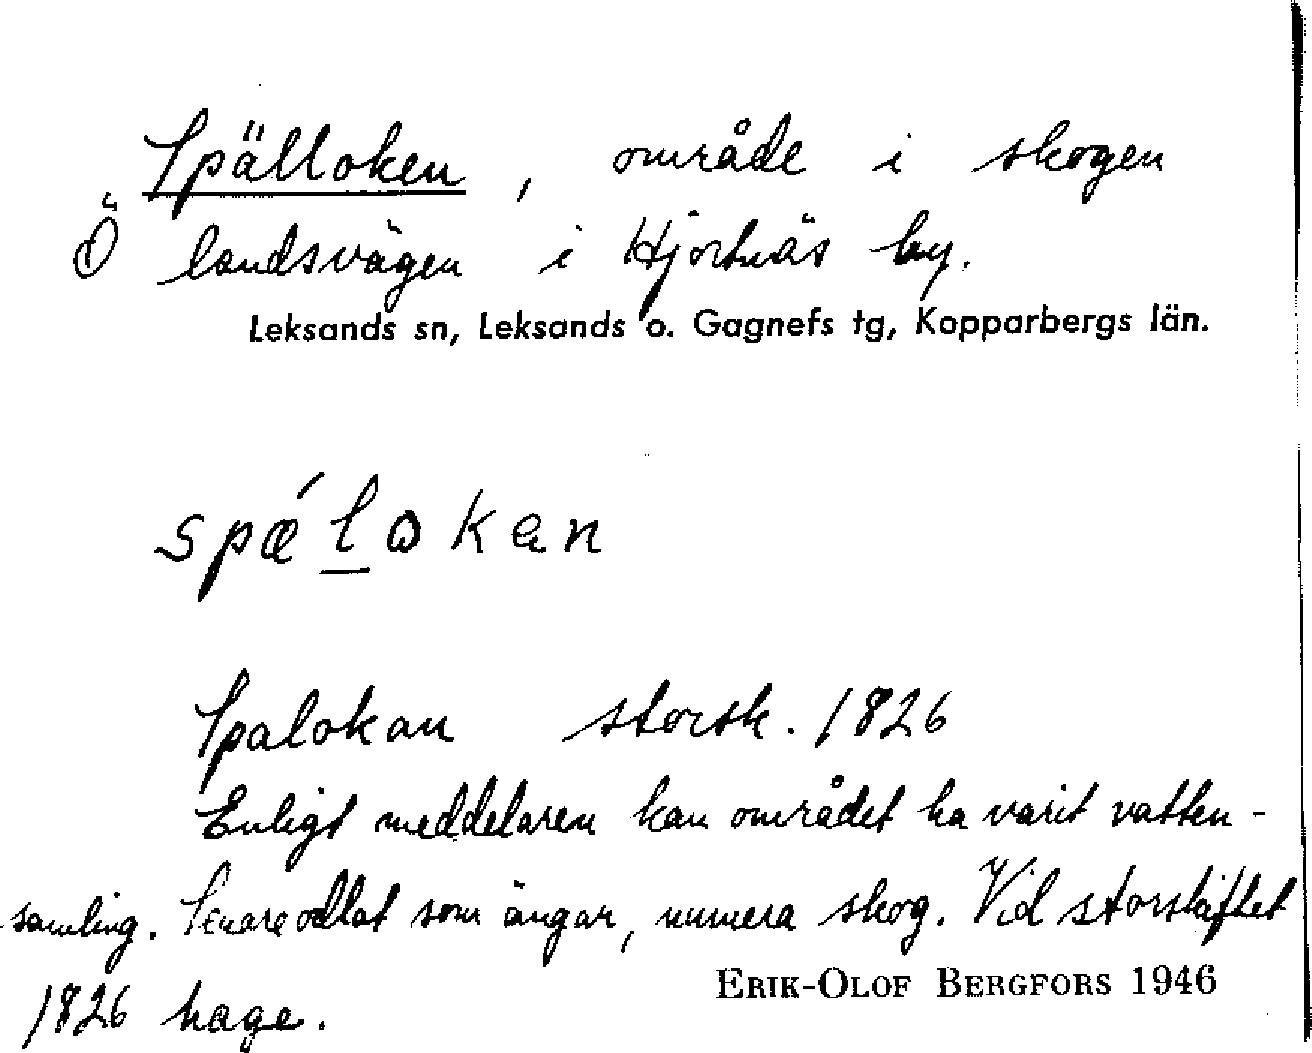 Spälloken, område i skogen
Ö landsvägen i Hjortnäs by.
Leksands sn, Leksands o. Gagnefs tg, Kopparbergs län.
spǽlokan
Spalokan storsk. 1826
Enligt meddelaren kan området ha varit vatten-
samling. Senare odlat som ängar, numera skog. Vid storskiftet
1826 hage.
ERIK-OLOF BERGFORS 1946